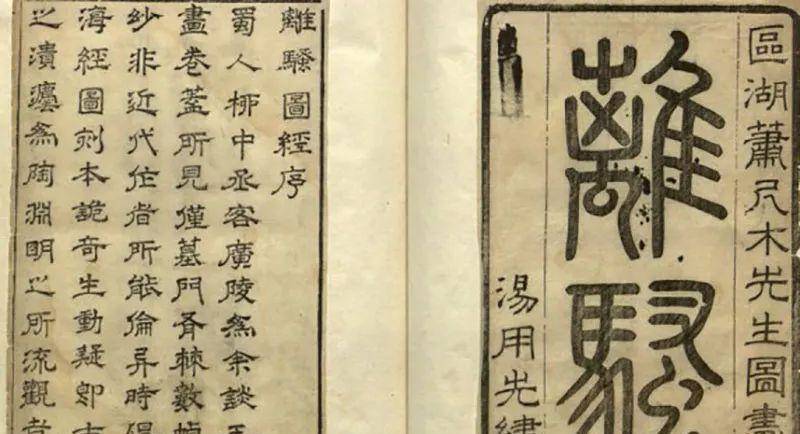 區湖蕭尺木先生圖畫
離騷
湯用先繡
離騷圖經序
蜀人栁中丞客廣陵為余談
畫卷蓋所見僅墓門棘數
紗非近代作者所能倫异時得
海經圖刻本詭奇生動疑即古
之瀆為陶淵明之所流觀者